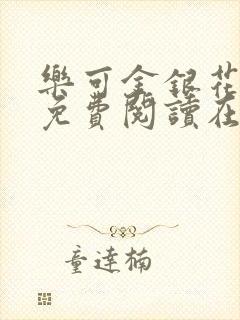 樂可金銀花
免費閱讀在
童達楠